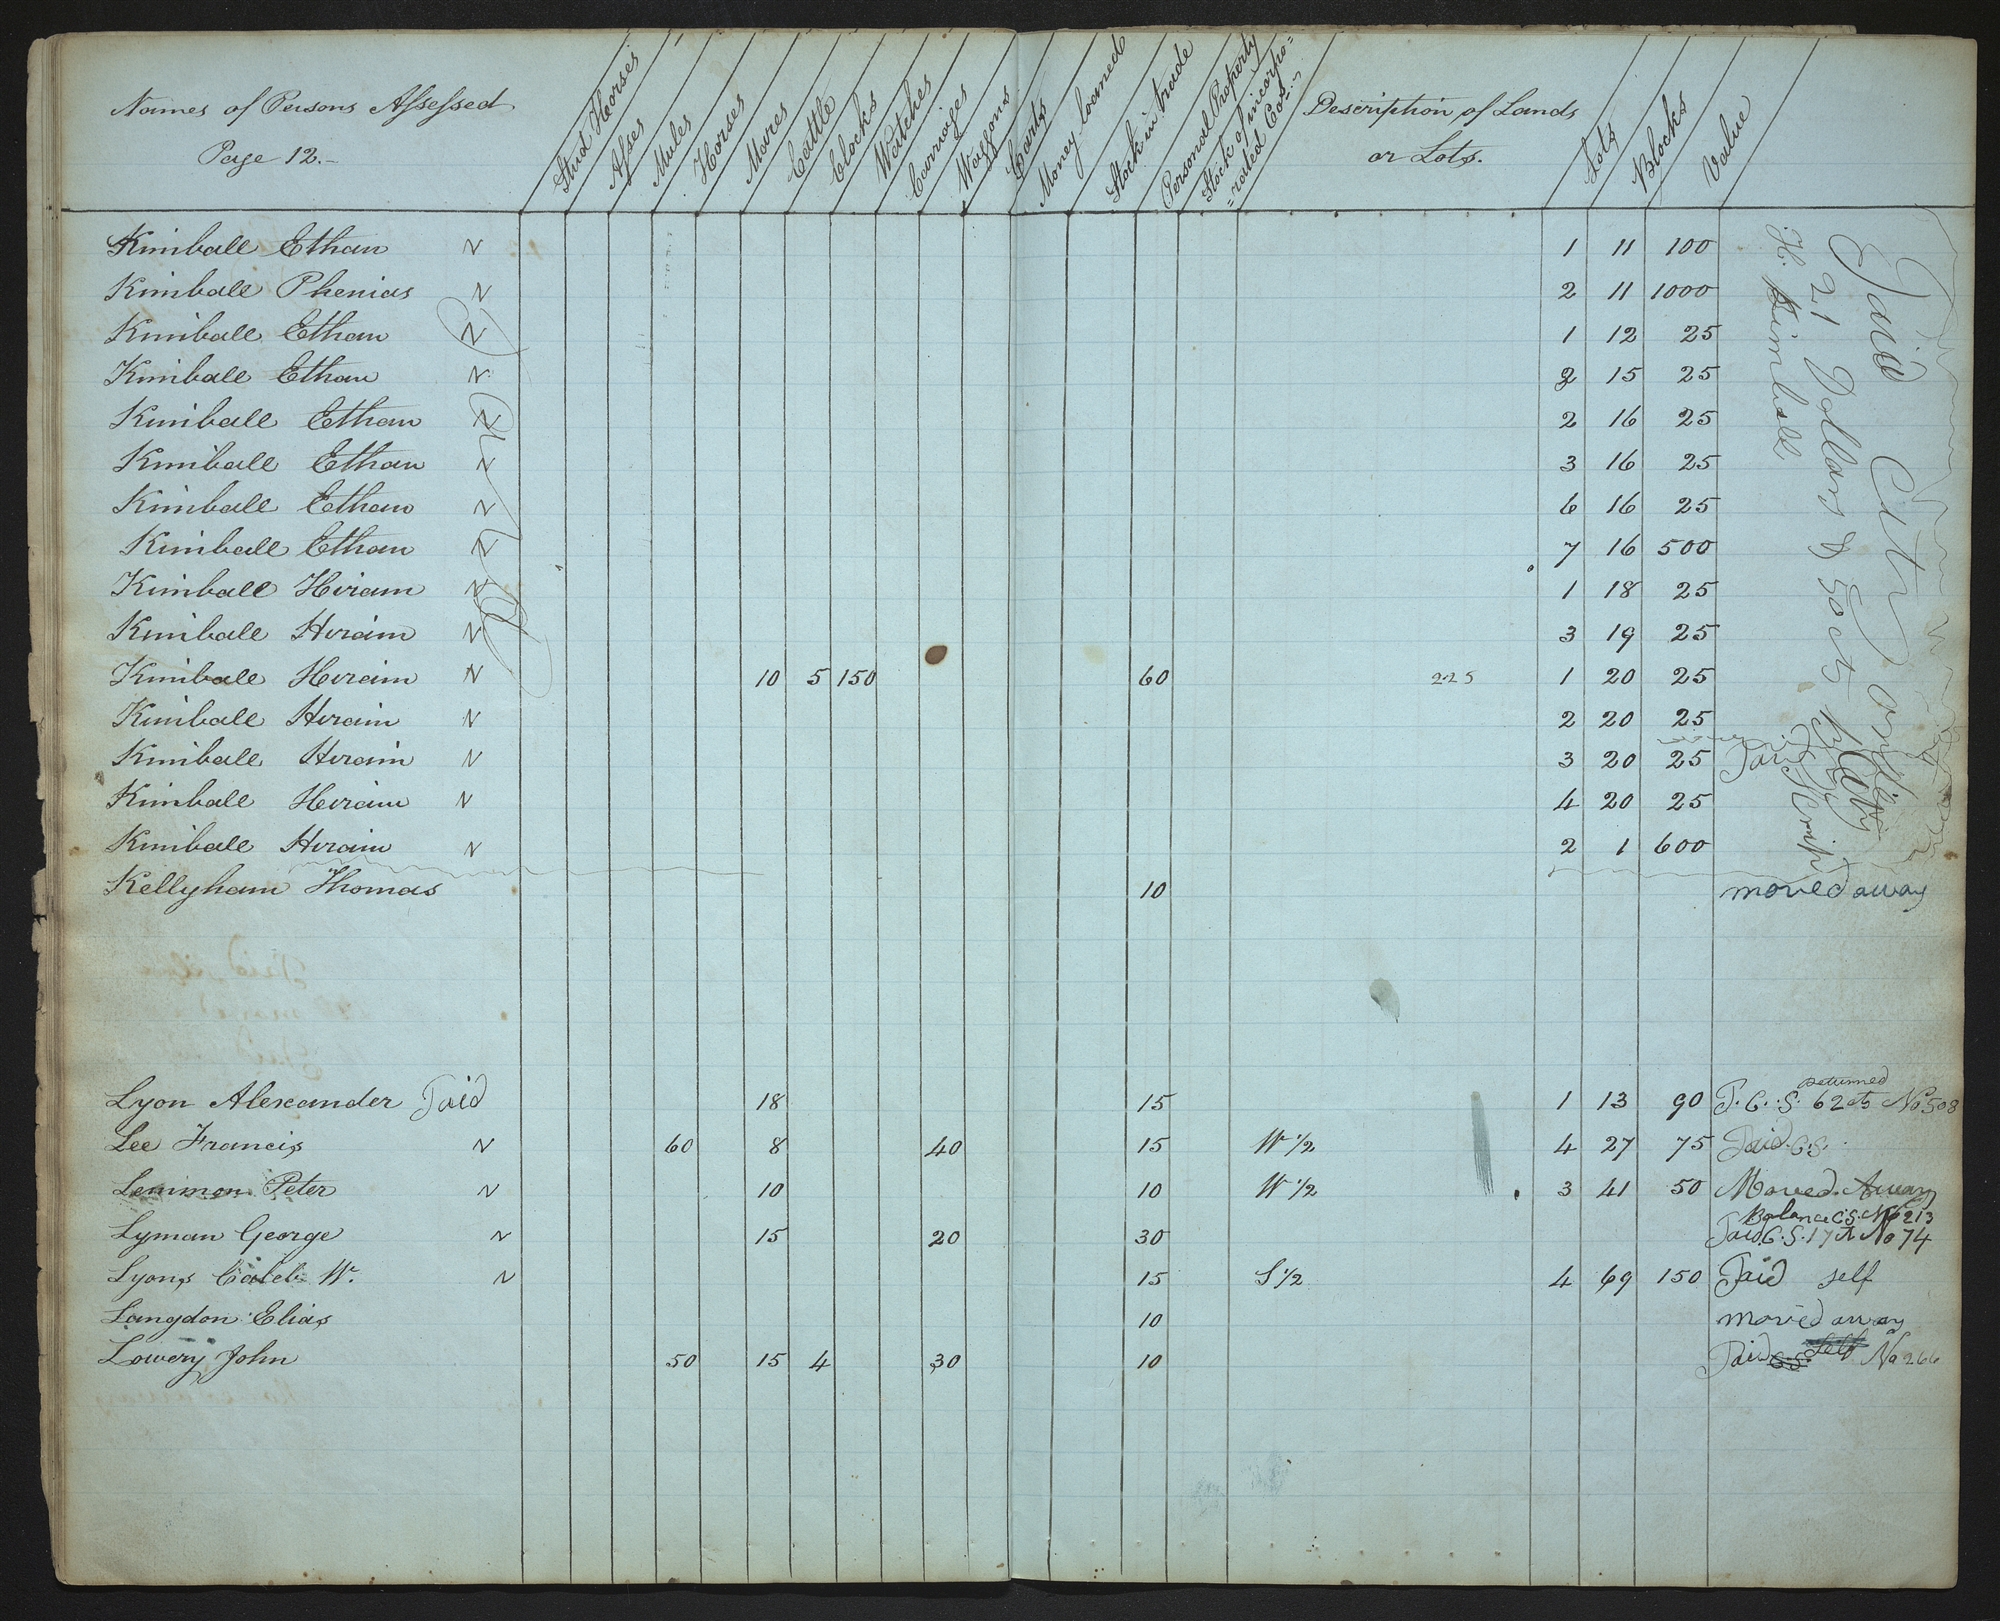 Names of Persons Assessed
Page 12.-
Stud Horses
Asses
Mules
Horses
Mares
Cattle
Clocks
Watches
Carriages
Waggons
Carts
Money loaned
Stock in trade
Personal Property
Stock of incorpo=
=rated Cos.
Description of Lands
or Lots.
Lots
Blocks
Value
Kimball Ethan N 1 11 100
Kimball Phenias N 2 11 1000
Kimball Ethan N 1 12 25
Kimball Ethan N 2 15 25
Kimball Ethan N 2 16 25
Kimball Ethan N 3 16 25
Kimball Ethan N 6 16 25
Kimball Ethan N 7 16 500
Kimball Hiram N 1 18 25
Kimball Hiram N 3 19 25
Kimball Hiram N 10 5 150 60 225 1 20 25
Kimball Hiram N 2 20 25
Kimball Hiram N 3 20 25
Kimball Hiram N 4 20 25
Kimball Hiram N 2 1 600
Paid City
21 Dollars & 50 cts by
H. Kimball
Scrip
Kellyham Thomas 10 moved away
returned
Lyon Alexander Paid 18 15 1 13 90 P. C. S. 62 cts No 508
Lee Francis N 60 8 40 15 W 1/2 4 27 75 Paid. C. S.
Lemmon Peter N 10 10 W 1/2 3 41 50 Moved Away
Balance C. S. No 213
Lyman George N 15 20 30 Paid C. S. 17 No 74
Lyons Caleb W. N 15 S 1/2 4 69 150 Paid self
Langdon Elias 10 moved away
Lowery John 50 15 4 30 10 Paid C. S. Self No 266